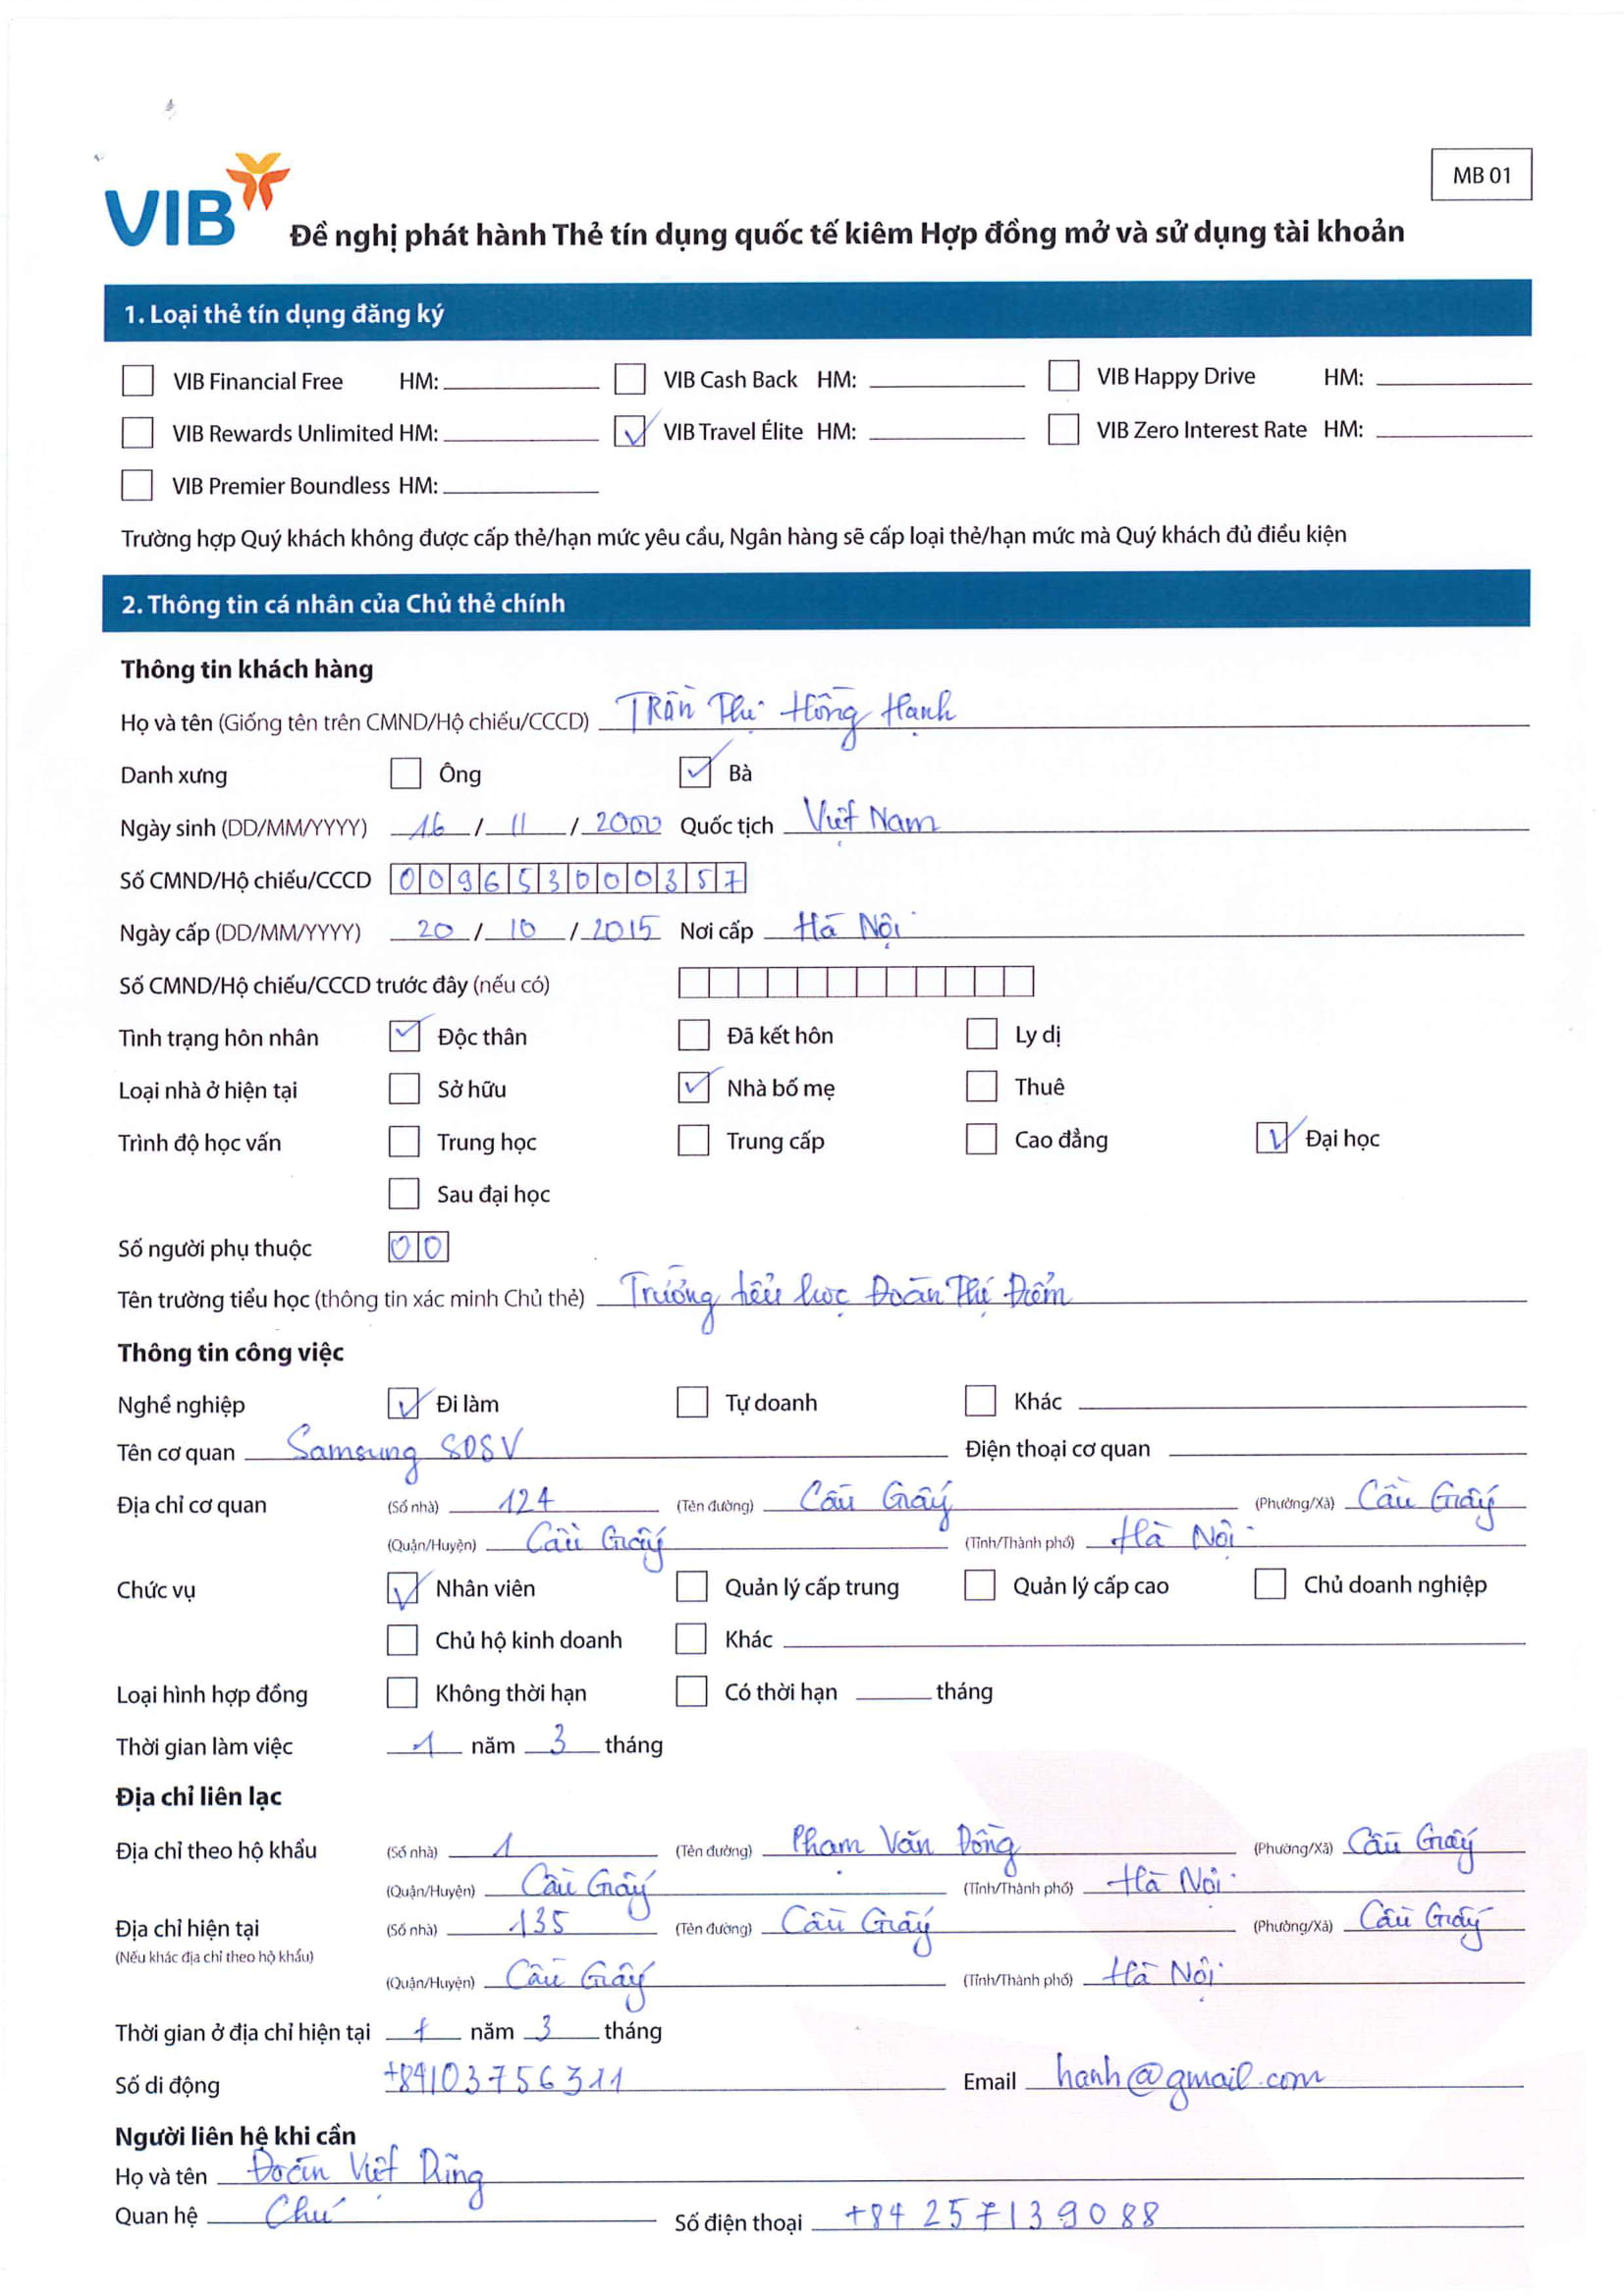 MB 01
VIB
Đề nghị phát hành Thẻ tín dụng quốc tế kiêm Hợp đồng mở và sử dụng tài khoản
1. Loại thẻ tín dụng đăng ký
VIB Financial Free HM: VIB Cash Back HM: VIB Happy Drive HM:
VIB Rewards Unlimited HM: VIB Travel Élite HM: VIB Zero Interest Rate HM:
VIB Premier Boundless HM:
Trường hợp Quý khách không được cấp thẻ/hạn mức yêu cầu, Ngân hàng sẽ cấp loại thẻ/hạn mức mà Quý khách đủ điều kiện
2. Thông tin cá nhân của Chủ thẻ chính
Thông tin khách hàng
Họ và tên (Giống tên trên CMND/Hộ chiếu/CCCD) Trần Thị Hồng Hạnh
Danh xưng Ông Bà
Ngày sinh (DD/MM/YYYY) 16 / 11 / 2000 Quốc tịch Việt Nam
Số CMND/Hộ chiếu/CCCD 009653000357
Ngày cấp (DD/MM/YYYY) 20 / 10 / 2015 Nơi cấp Hà Nội
Số CMND/Hộ chiếu/CCCD trước đây (nếu có)
Tình trạng hôn nhân Độc thân Đã kết hôn Ly dị
Loại nhà ở hiện tại Sở hữu Nhà bố mẹ Thuê
Trình độ học vấn Trung học Trung cấp Cao đẳng Đại học
Sau đại học
Số người phụ thuộc 00
Tên trường tiểu học (thông tin xác minh Chủ thẻ) Trường tiểu học Đoàn Thị Điểm
Thông tin công việc
Nghề nghiệp Đi làm Tự doanh Khác
Tên cơ quan Samsung SDSV Điện thoại cơ quan
Địa chỉ cơ quan (Số nhà) 124 (Tên đường) Cầu Giấy (Phường/Xã) Cầu Giấy
(Quận/Huyện) Cầu Giấy (Tỉnh/Thành phố) Hà Nội
Chức vụ Nhân viên Quản lý cấp trung Quản lý cấp cao Chủ doanh nghiệp
Chủ hộ kinh doanh Khác
Loại hình hợp đồng Không thời hạn Có thời hạn tháng
Thời gian làm việc 1 năm 3 tháng
Địa chỉ liên lạc
Địa chỉ theo hộ khẩu (Số nhà) 1 (Tên đường) Phạm Văn Đồng (Phường/Xã) Cầu Giấy
(Quận/Huyện) Cầu Giấy (Tỉnh/Thành phố) Hà Nội
Địa chỉ hiện tại (Số nhà) 135 (Tên đường) Cầu Giấy (Phường/Xã) Cầu Giấy
(Nếu khác địa chỉ theo hộ khẩu)
(Quận/Huyện) Cầu Giấy (Tỉnh/Thành phố) Hà Nội
Thời gian ở địa chỉ hiện tại 1 năm 3 tháng
Số di động +84103756311 Email hanh@gmail.com
Người liên hệ khi cần
Họ và tên Đoàn Việt Dũng
Quan hệ Chú Số điện thoại +84 257139088